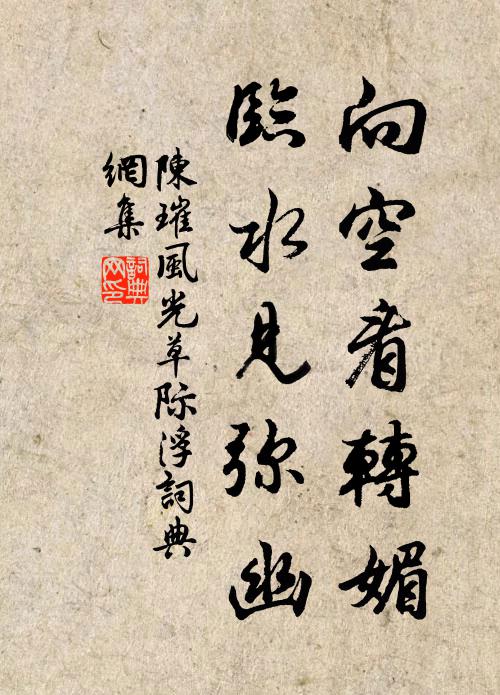 向空看轉媚
臨水見弥幽
陳璀風光草际浮詞典
網集
詞典
网印